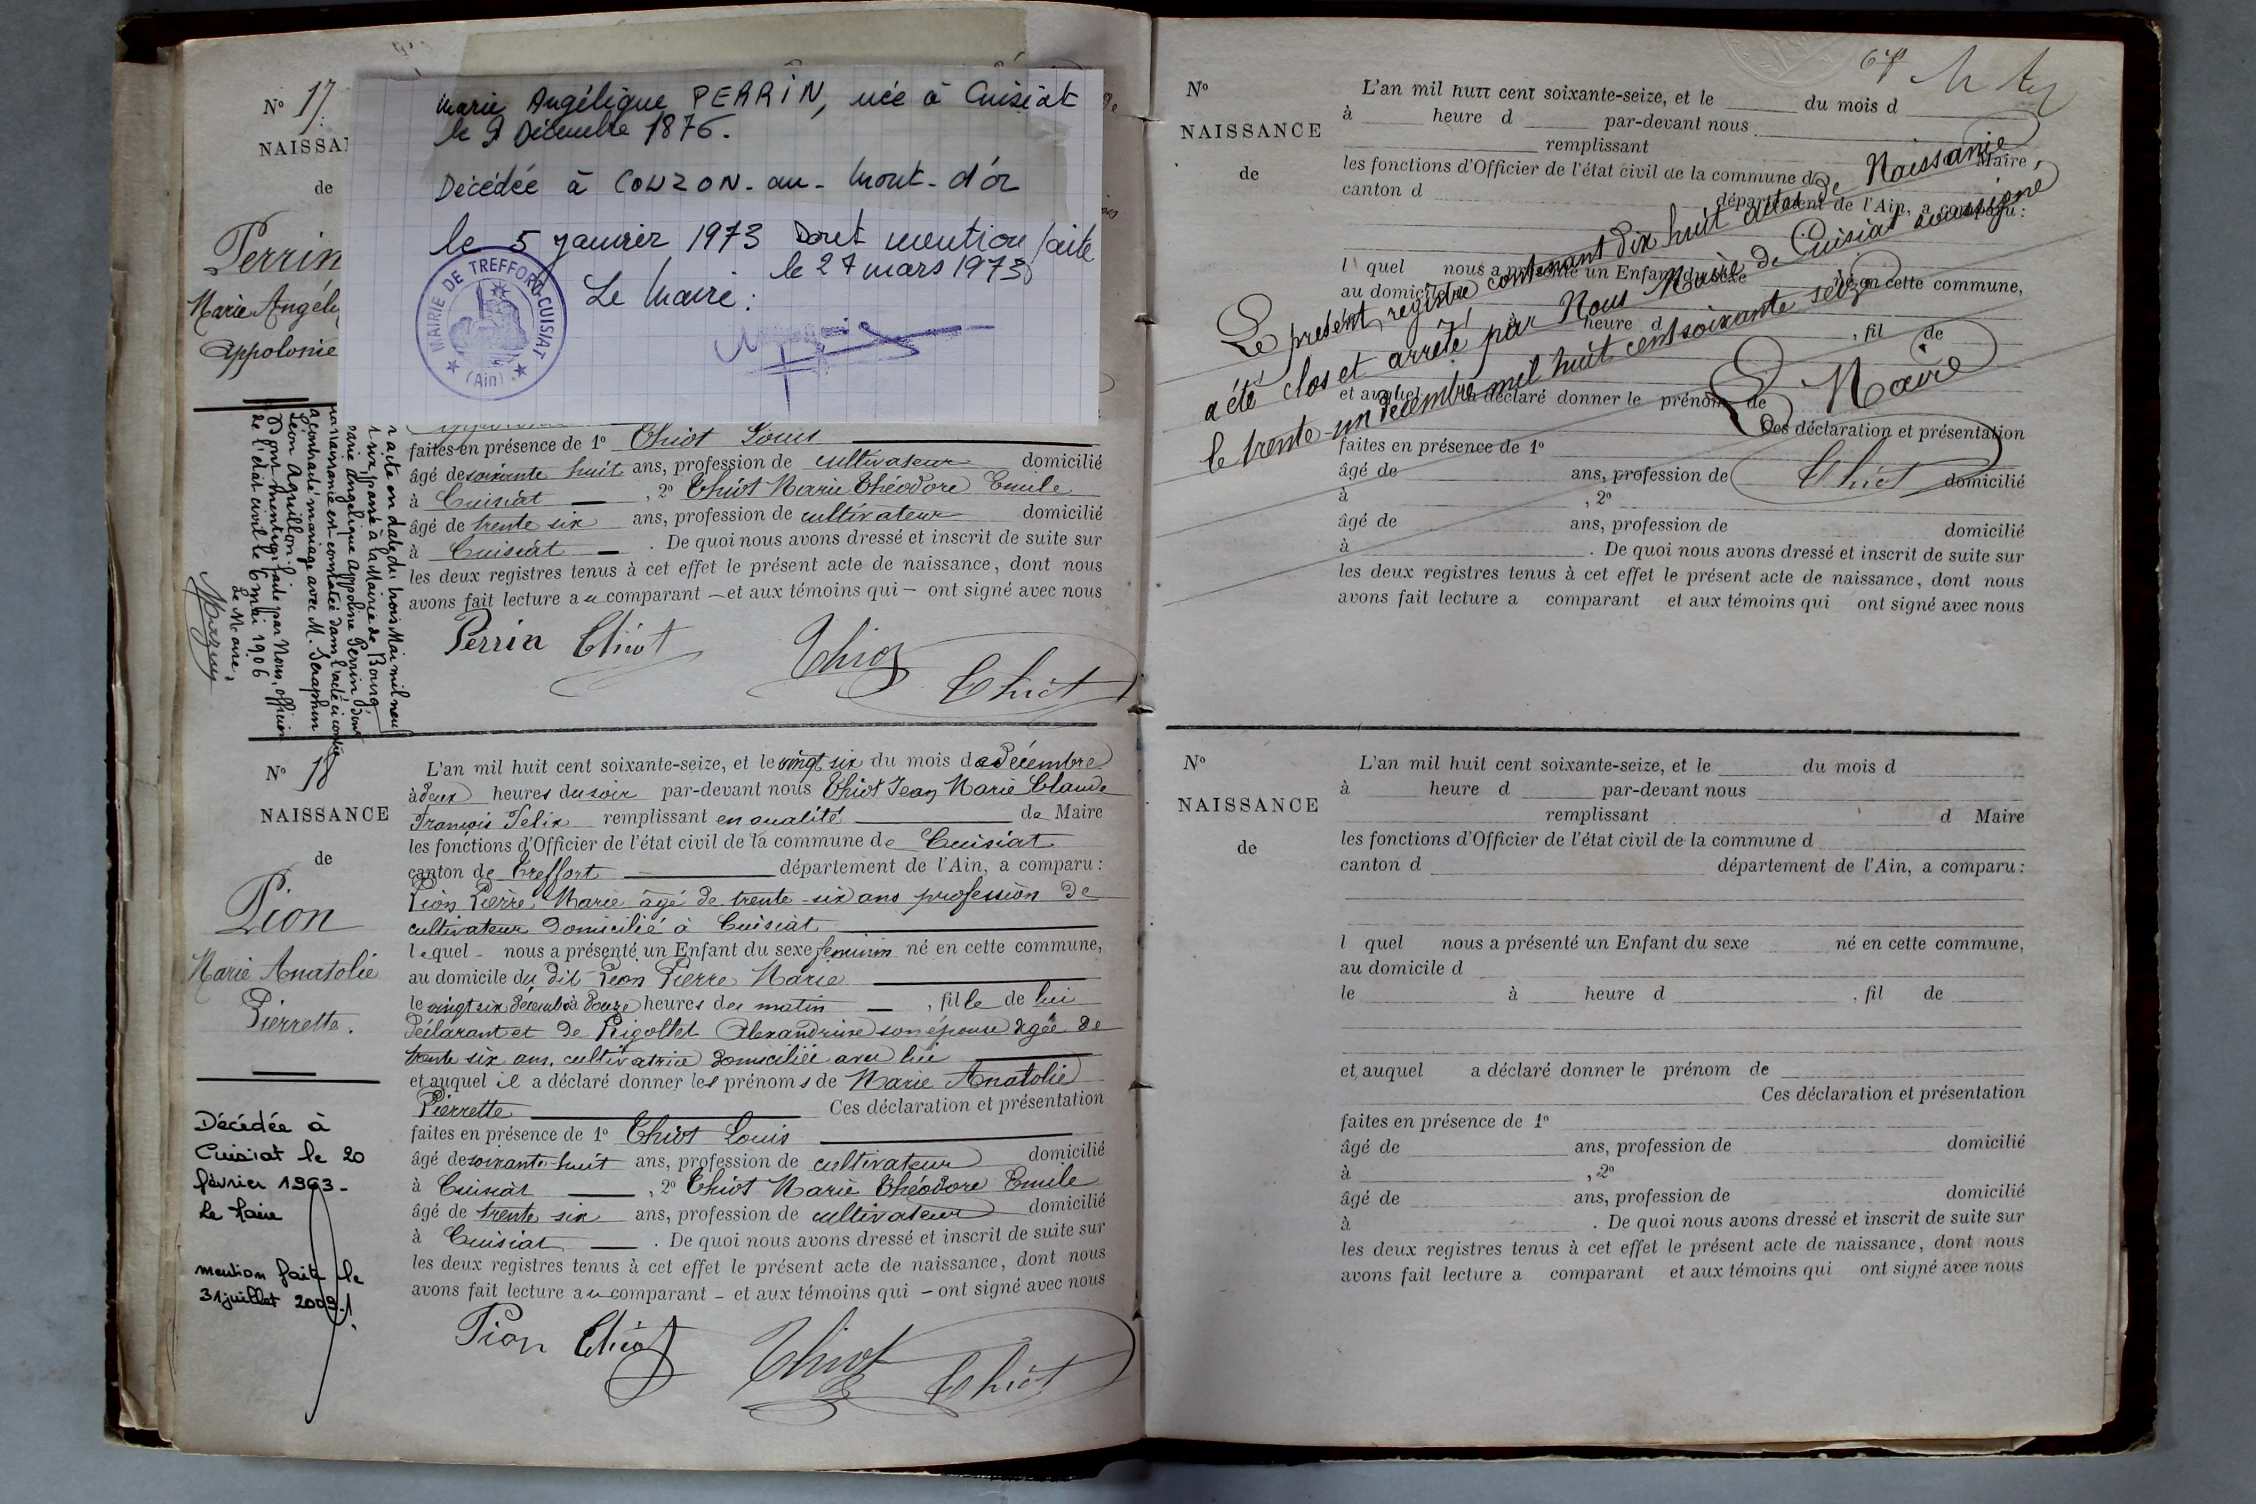 N° 17.
NAISSA
de
Perrin
Marie Angéli
Appolonie
Marie Angélique PERRIN, née à Cuisiat
le 9 Décembre 1876.
Décédée à COUZON-au-Mont-d'or
le 5 janvier 1973 Dont mention faite
le 27 mars 1973
Le Maire :
MAIRIE DE TREFFORT-CUISIAT
(Ain)
acte en date du trois Mai mil neuf
six, passé à la Mairie de Bourg,
Marie Angélique Appolonie Perrin dont
la naissance est constatée dans l'acte ci contre
a contracté mariage avec M. Seraphin
Léon Aguillon.
Dont mention faite par Nous, officier
de l'état civil le 6 mai 1906
Le Maire,
faites en présence de 1° Chiot Louis
âgé de soixante huit ans, profession de cultivateur domicilié
à Cuisiat , 2° Chiot Marie Théodore Emile
âgé de trente six ans, profession de cultivateur domicilié
à Cuisiat . De quoi nous avons dressé et inscrit de suite sur
les deux registres tenus à cet effet le présent acte de naissance, dont nous
avons fait lecture au comparant et aux témoins qui ont signé avec nous
Perrin Chiot Chiot Chiot
N° 18
NAISSANCE
de
Pion
Marie Anatolie
Pierrette.
Décédée à
Cuisiat le 20
février 1963-
Le Maire
mention faite le
31 juillet 2009
L'an mil huit cent soixante-seize, et le vingt six du mois de décembre
à deux heures du soir par-devant nous Chiot Jean Marie Claude
François Félix remplissant en qualité de Maire
les fonctions d'Officier de l'état civil de la commune de Cuisiat
canton de Treffort département de l'Ain, a comparu :
Pion Pierre Marie âgé de trente-six ans profession de
cultivateur domicilié à Cuisiat
lequel nous a présenté un Enfant du sexe féminin né en cette commune,
au domicile du dit Pion Pierre Marie
le vingt six décembre à douze heures du matin , fille de lui
déclarant et de Rigollet Alexandrine son épouse âgée de
trente six ans, cultivatrice domiciliée avec lui
et auquel il a déclaré donner les prénoms de Marie Anatolie
Pierrette Ces déclaration et présentation
faites en présence de 1° Chiot Louis
âgé de soixante-huit ans, profession de cultivateur domicilié
à Cuisiat , 2° Chiot Marie Théodore Emile
âgé de trente six ans, profession de cultivateur domicilié
à Cuisiat . De quoi nous avons dressé et inscrit de suite sur
les deux registres tenus à cet effet le présent acte de naissance, dont nous
avons fait lecture au comparant et aux témoins qui ont signé avec nous
Pion Chiot Chiot Chiot
N°
NAISSANCE
de
L'an mil huit cent soixante-seize, et le du mois d
à heure d par-devant nous
remplissant d Maire
les fonctions d'Officier de l'état civil de la commune d
canton d département de l'Ain, a comparu :
l quel nous a présenté un Enfant du sexe né en cette commune,
au domicile d
heure d , fil de
et auquel a déclaré donner le prénom de
Ces déclaration et présentation
faites en présence de 1°
âgé de ans, profession de domicilié
à , 2°
âgé de ans, profession de domicilié
à . De quoi nous avons dressé et inscrit de suite sur
les deux registres tenus à cet effet le présent acte de naissance, dont nous
avons fait lecture a comparant et aux témoins qui ont signé avec nous
Le présent registre contenant dix huit actes de Naissance
a été clos et arrêté par Nous Maire de Cuisiat soussigné
le trente-un décembre mil huit cent soixante seize
Le Maire
Chiot
N°
NAISSANCE
de
L'an mil huit cent soixante-seize, et le du mois d
à heure d par-devant nous
remplissant d Maire
les fonctions d'Officier de l'état civil de la commune d
canton d département de l'Ain, a comparu :
l quel nous a présenté un Enfant du sexe né en cette commune,
au domicile d
le à heure d , fil de
et auquel a déclaré donner le prénom de
Ces déclaration et présentation
faites en présence de 1°
âgé de ans, profession de domicilié
à , 2°
âgé de ans, profession de domicilié
à . De quoi nous avons dressé et inscrit de suite sur
les deux registres tenus à cet effet le présent acte de naissance, dont nous
avons fait lecture a comparant et aux témoins qui ont signé avec nous